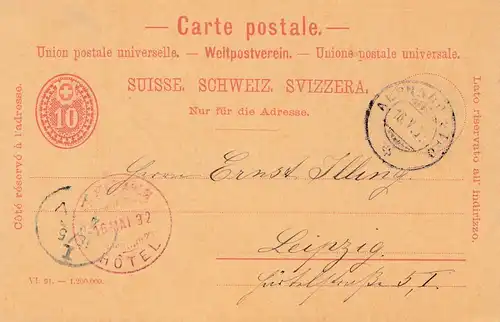 Carte postale.
Union postale universelle. — Weltpostverein. — Unione postale universale.
SUISSE. SCHWEIZ. SVIZZERA.
Nur für die Adresse.
Côté réservé à l'adresse.
Lato riservato all' indirizzo.
10
Herrn Ernst Illing.
16 MAI 92
HÔTEL
Leipzig.
5, I
VI. 91. — 1.200.000.